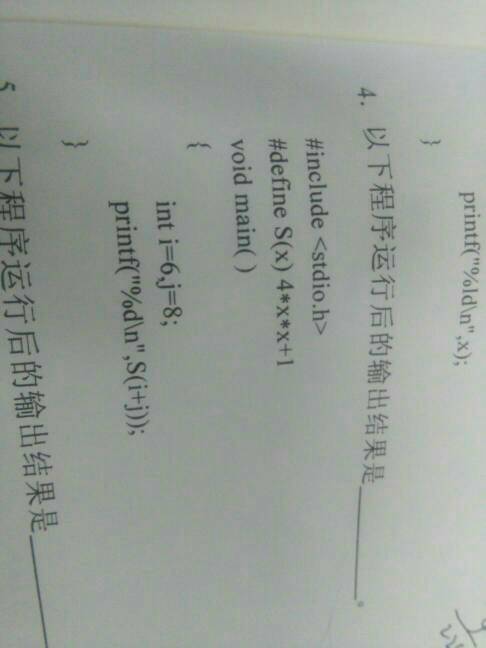 printf("%ld\n",x);
}
4. 以下程序运行后的输出结果是________。
#include <stdio.h>
#define S(x) 4*x*x+1
void main( )
{
int i=6,j=8;
printf("%d\n",S(i+j));
}
5 以下程序运行后的输出结果是________